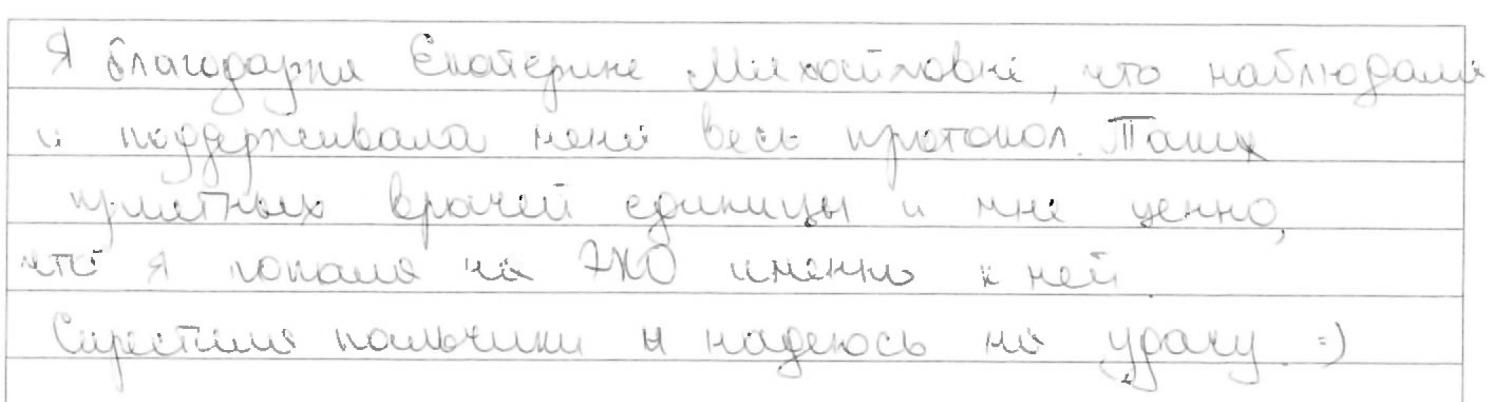 Я благодарна Екатерине Михайловне, что наблюдала
и поддерживала меня весь протокол. Таких
приятных врачей единицы и мне ценно,
что я попала на ЭКО именно к ней
Скрестила пальчики и надеюсь на удачу =)